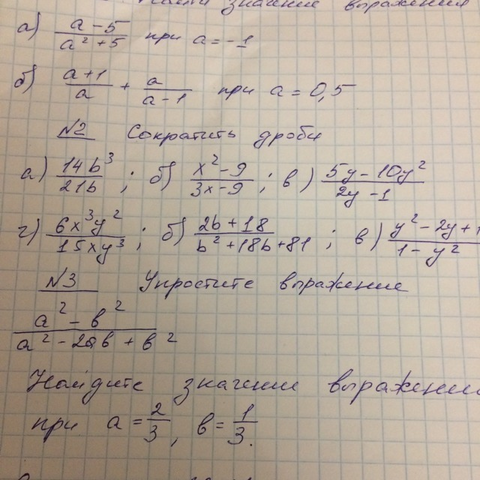 значение выражения
а) (a-5)/(a²+5) при a=-1
б) (a+1)/a + a/(a-1) при a=0,5
N2 Сократить дроби
а) 14b³/21b ; б) (x²-9)/(3x-9) ; в) (5y-10y²)/(2y-1)
г) 6x³y²/15xy³ ; б) (2b+18)/(b²+18b+81) ; в) (y²-2y+1)/(1-y²)
N3 Упростите выражение
(a²-b²)/(a²-2ab+b²)
Найдите значение выражени
при a=2/3, b=1/3.